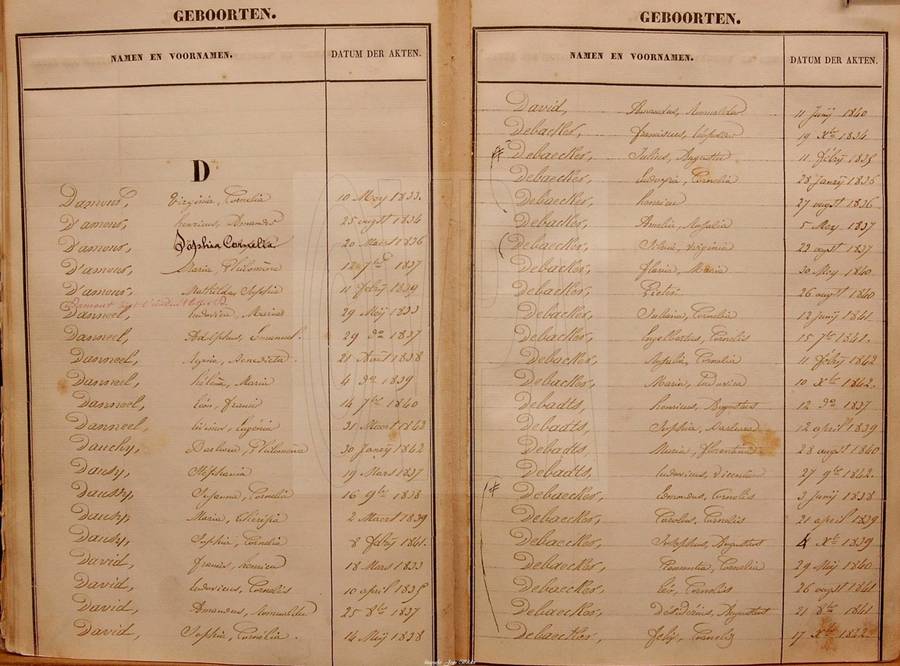 GEBOORTEN.
NAMEN EN VOORNAMEN. DATUM DER AKTEN.
D
Damous, Virginia, Cornelia 10 Mey 1833.
D'amous, henricus, Amandus 25 augst 1834
D'amous, Sophia Cornelia 20 Maert 1836
D'amous, Maria, Philomène 12 7bre 1837
D'amous, Mathilde, Sophie 11 febry 1839
Danneel, Ludovica, Maria 29 Meij 1833
Danneel, Adolphus, Emmanuel. 29 do 1837
Danneel, Benedicta 21 Août 1838
Danneel, hélène, Marie 4 do 1839
Danneel, léon, francis 14 7bre 1840
Danneel, Eugénie 31 Maert 1842
Dauchy, Barbara, Philomène 30 Janry 1842
Dausy, Stéphanie 19 Mars 1837
Dausy, Joanna, Cornelia 16 9bre 1838
Dausy, Maria, Thérésia 2 Maert 1839
Dausy, Sophia, Cornelia 8 febry 1841.
David, francis, honoré 18 Mars 1833
David, Ludovicus, Cornelis 10 april 1835
David, Amandus, Romualdus 25 8bre 1837
David, Sophie, Cornelia. 14 Meij 1838
GEBOORTEN.
NAMEN EN VOORNAMEN. DATUM DER AKTEN.
David, Amandus, Romualdus 11 Junij 1840
Debacker, franciscus 19 Xbre 1834
Debaecker, Julius, Auguste 11 febry 1835
Debaecker, Ludovica, Cornelia 28 Janry 1836
Debaecker, honoré 27 augst 1836
Debaecker, Amelia, Rosalia 5 Mey 1837
Debaecker, Silvie, Virginie 23 augst 1837
Debacker, flavie, Marie 30 Mey 1840
Debaecker, Pieter 26 augst 1840
Debacker, Juliana, Cornelia 12 junij 1841.
Debaecker, Engelbertus, Cornelis 15 7bre 1841.
Debacker, Rosalia, Cornelia 11 febry 1842
Debaecker, Maria, Ludovica 10 Xbre 1842.
Debadts, henricus, Augustinus 12 do 1837
Debadts, Sophia, Barbara 12 april 1839
Debadts, Maria, florentina 28 augst 1840
Debadts, Ludovicus, Vincentius 27 9bre 1842.
Debaecker, Edmondus, Cornelis 3 Junij 1838
Debaecker, Carolus, Cornelis 21 april 1839
Debaecker, Adolphus, Augustus 4 Xbre 1839
Debaecker, Clementia, Cornelia 29 Meij 1840
Debaecker, léo, Cornelis 26 augst 1841
Debaecker, Désidérius, Augustus 21 8bre 1841
Debaecker, felix, Cornelis 17 Xbre 1842